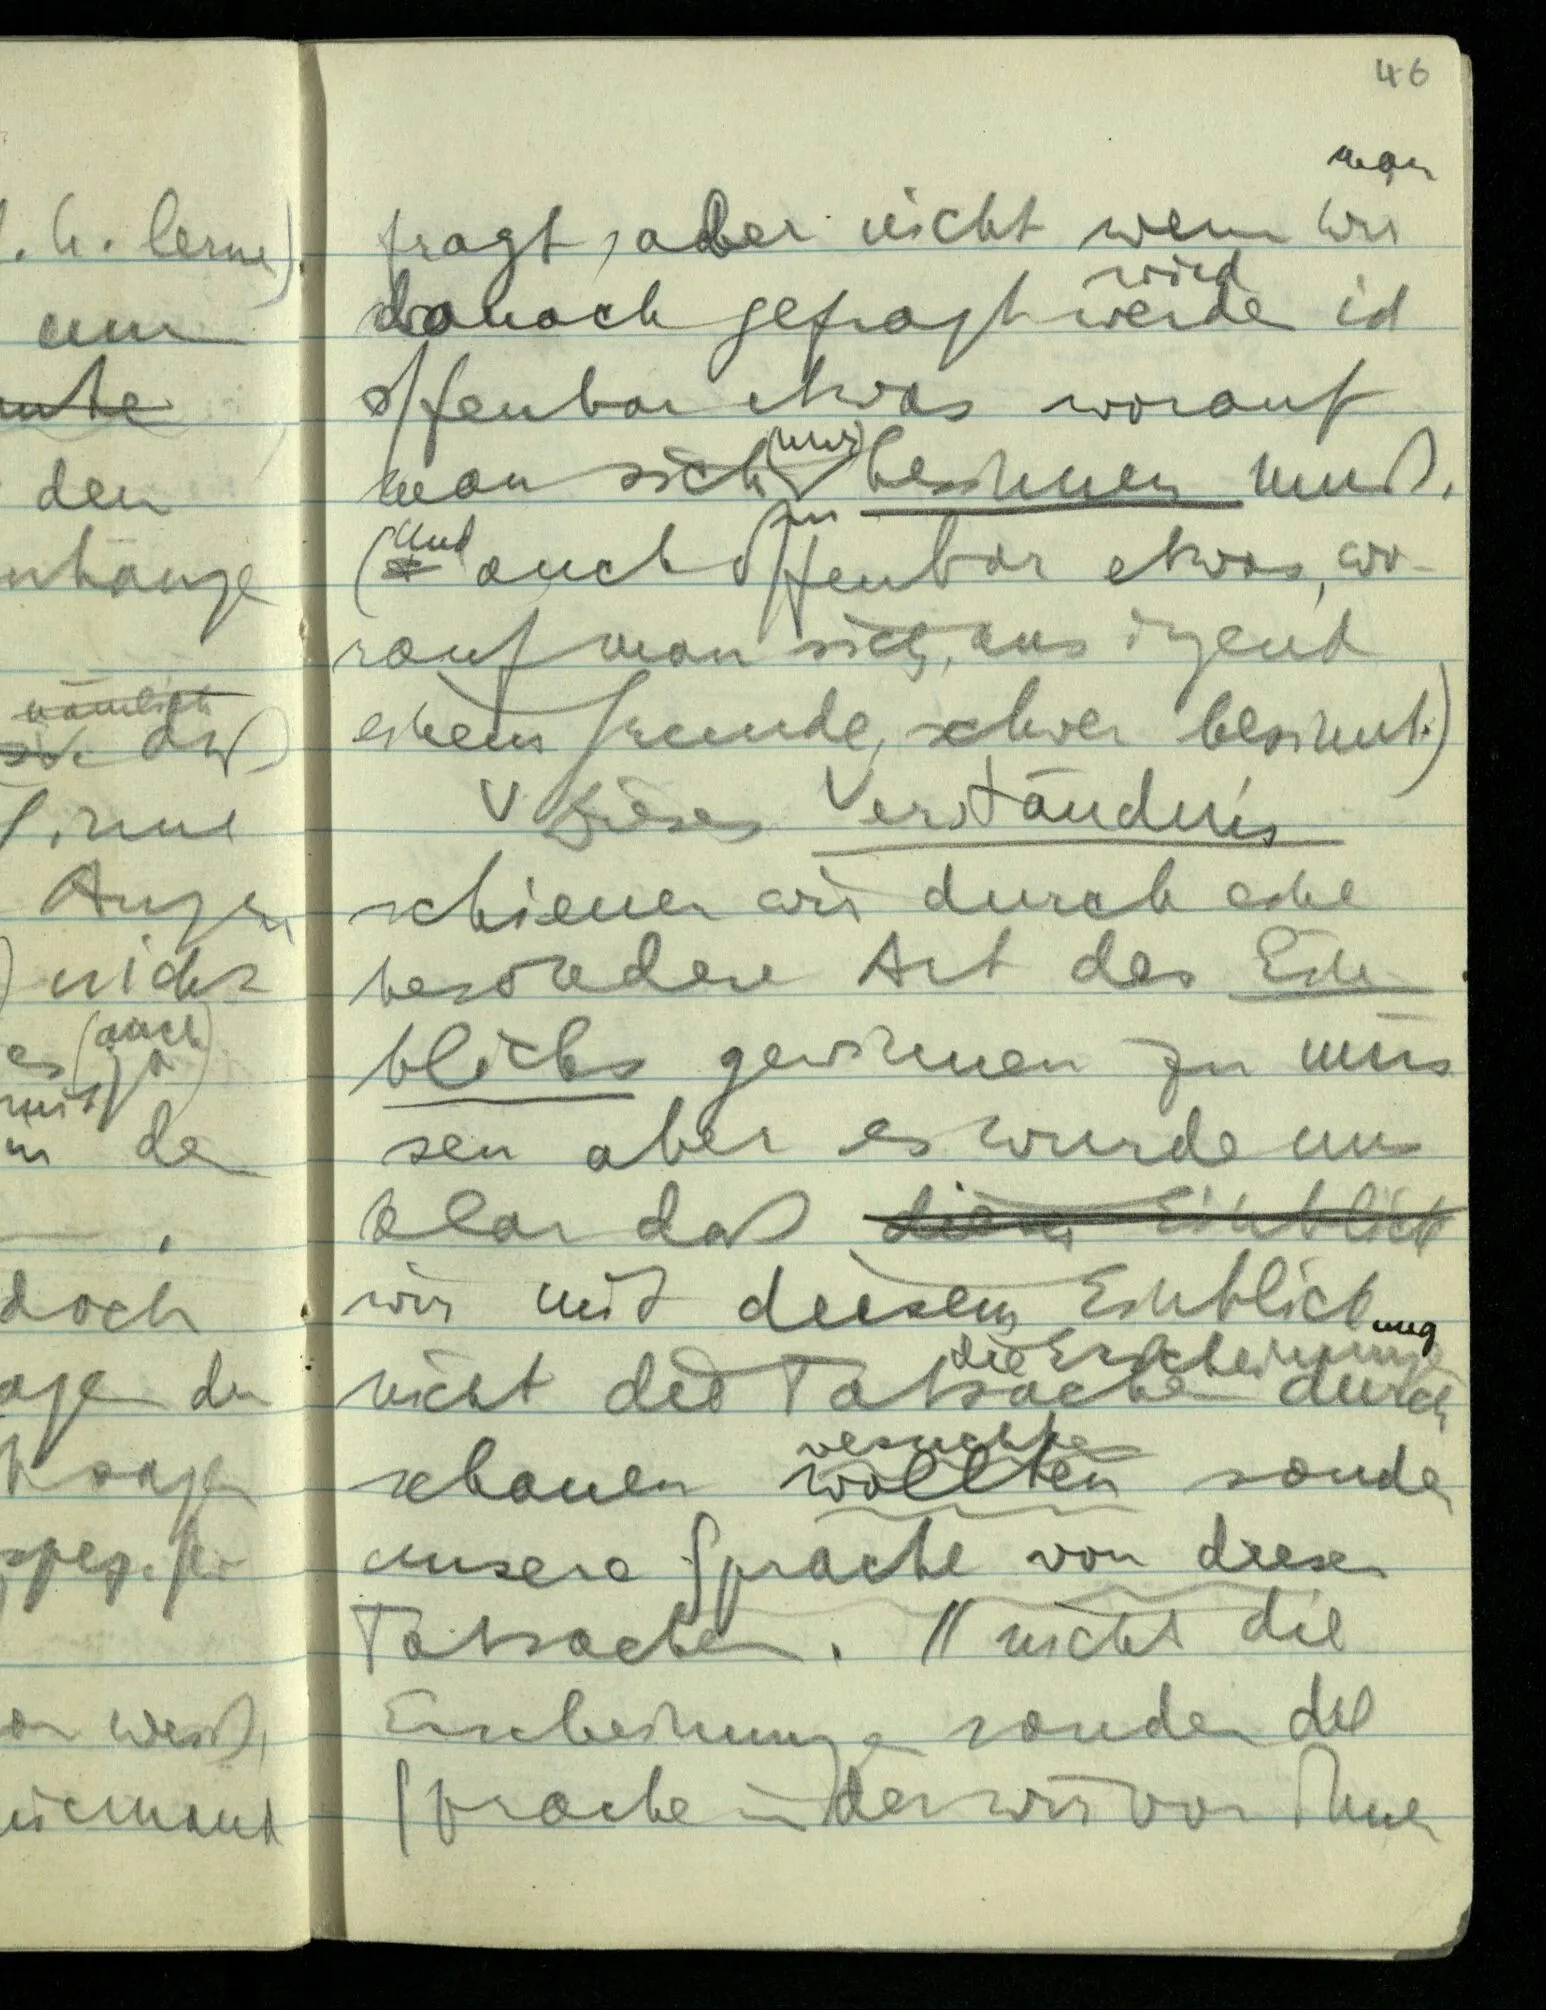 46
man
fragt, aber nicht wenn wir
wird
danach gefragt werde ist
offenbar etwas worauf
man sich (nur) besinnen muß.
zu
(Und auch offenbar etwas, wo-
rauf man sich, aus irgend
einem Grunde, schwer besinnt.)
V Dieses Verständnis
schienen wir durch eine
besondere Art des Ein
blicks gewinnen zu müs
sen aber es wurde uns
klar daß dieser Einblick
wir mit diesem Einblick
nicht die Tatsachen durch
die Erscheinung
schauen wollten sonder
versuchte
unsere Sprache von diesen
Tatsachen. // nicht die
Erscheinunge sonder die
Sprache in der wir von ihnen
d. h. lerne)
um
den
nämlich
daß
Augen
nicht
(auch)
es ja
mit
in de
doch
sagen
spez. für
weiß,
niemand